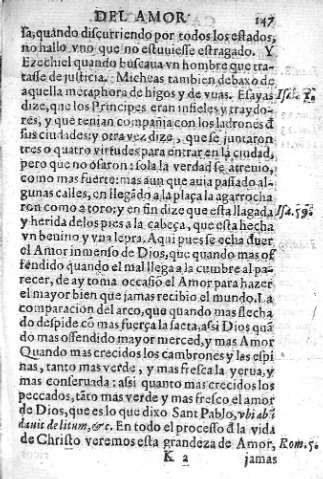 DEL AMOR 147
sa, quãndo discurriendo por todos los estados,
no hallo vno que no estuuiesse estragado. Y
Ezechiel quando buscaua vn hombre que tra-
tasse de justicia. Micheas tambien debaxo de
aquella metaphora de higos y de vuas. Esayas Isa. 1.
dize, que los Principes eran infieles y traydo-
res, y que tenian compañia con los ladrones d̃
sus ciudades: y otra vez dize, que se juntaron
tres o quatro virtudes para entrar en la ciudad,
pero que no osaron: sola la verdad se atreuio,
como mas fuerte: mas aun que auia passado al-
gunas calles, en llegãdo a la plaça la agarrocha
ron como a toro: y en fin dize que esta llagada Isa. 59.
y herida de los pies a la cabeça, que esta hecha
vn benino y vna lepra. Aqui pues se echa d̃ uer
el Amor inmenso de Dios, que quando mas of
fendido quando el mal llega a la cumbre al pa-
recer, de ay toma occasiõ el Amor para hazer
el mayor bien que jamas recibio el mundo. La
comparacion del arco, que quando mas flecha
do despide cõ mas fuerça la saeta, assi Dios quã
do mas offendido mayor merced, y mas Amor
Quando mas crecidos los cambrones y las espi
nas, tanto mas verde, y mas fresca la yerua, y
mas conseruada: assi quanto mas crecidos los
peccados, tãto mas verde y mas fresco el amor
de Dios, que es lo que dixo Sant Pablo, vbi abũ
dauit delitum, &c. En todo el processo d̃ la vida
de Christo veremos esta grandeza de Amor, Rom. 5.
K 2 jamas